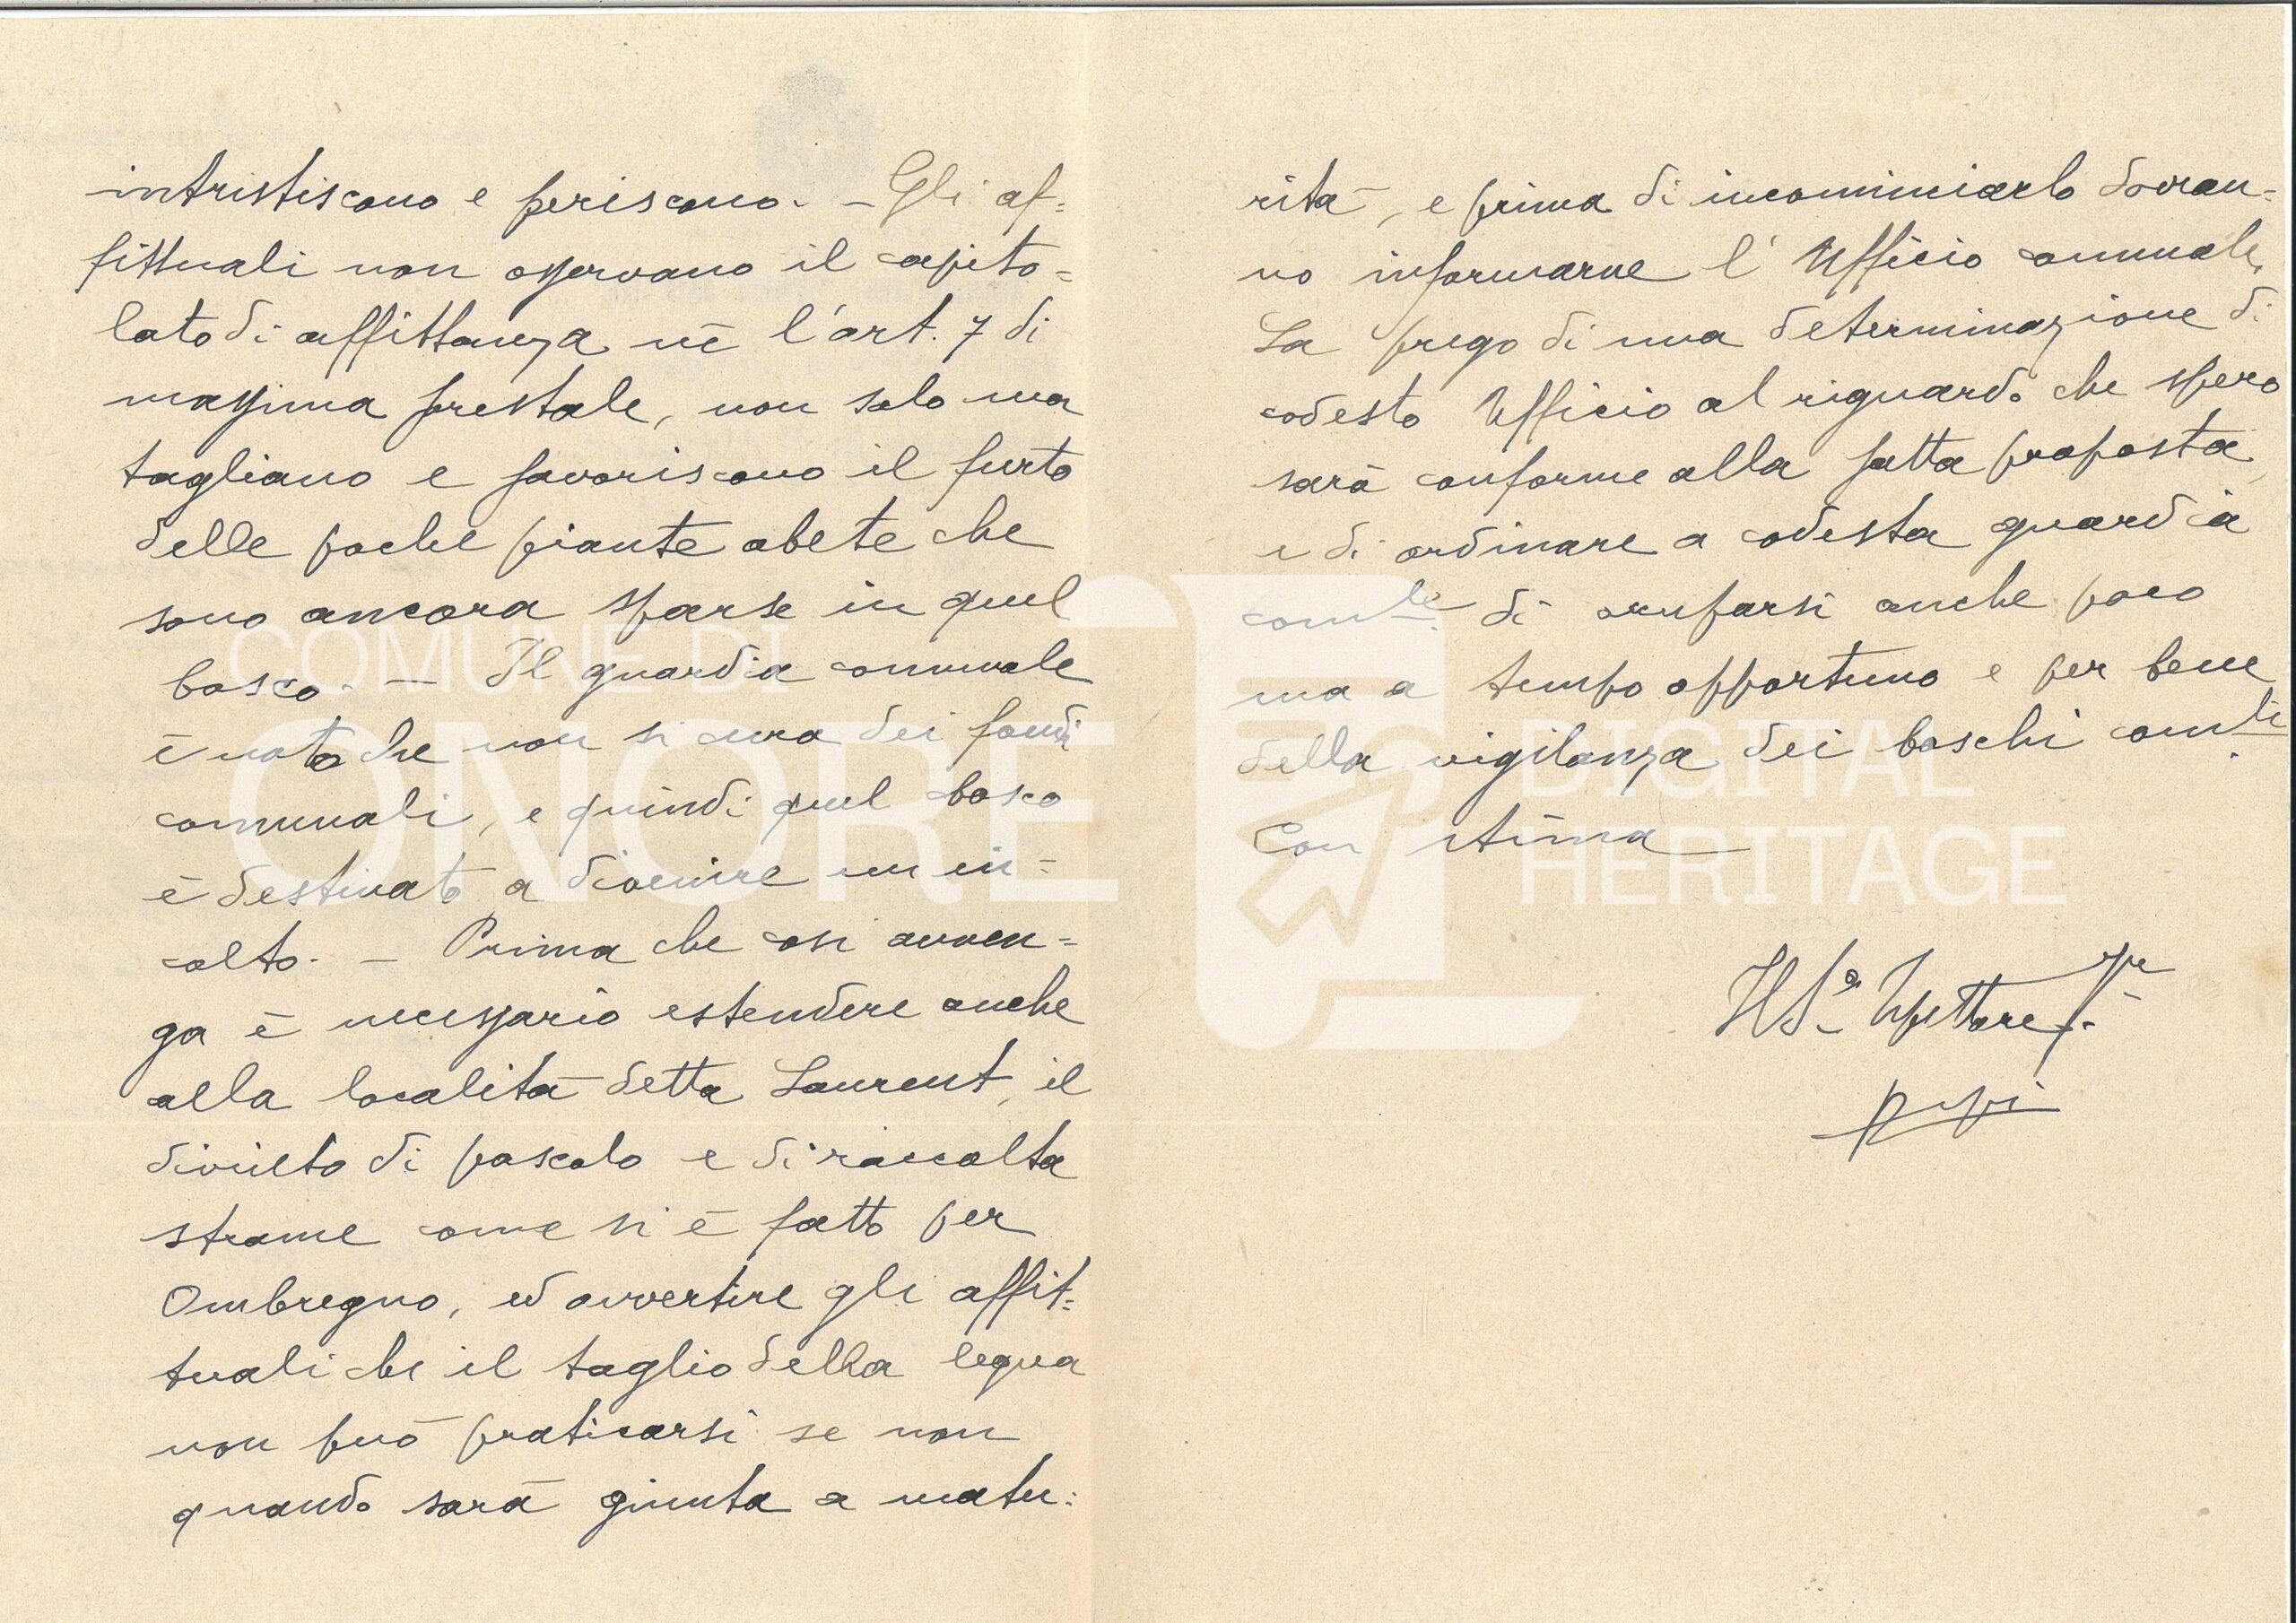 intristiscono e periscono. — Gli af=
fittuali non osservano il capito=
lato di affittanza nē l'art. 7 di
massima forestale, non solo ma
tagliano e favoriscono il furto
delle poche piante abete che
sono ancora sparse in quel
bosco. — Il guardia comunale
ē noto che non si cura dei fondi
comunali, e quindi quel bosco
ē destinato a divenire un in=
colto. — Prima che così avven=
ga ē necessario estendere anche
alla località detta Laurent, il
divieto di pascolo e di raccolta
strame come si ē fatto per
Ombregno, ed avvertire gli affit=
tuali che il taglio della legna
non può praticarsi se non
quando sarà giunta a matu=
rità, e prima di incominciarlo dovran=
no informarne l'Ufficio comunale.
La prego di una determinazione di
codesto Ufficio al riguardo che spero
sarà conforme alla fatta proposta,
e di ordinare a codesta guardia
com.le di occuparsi anche poco
ma a tempo opportuno e per bene
della vigilanza dei boschi com.li
Con stima
Il S. Ispettore
COMUNE DI
ONORE
DIGITAL
HERITAGE